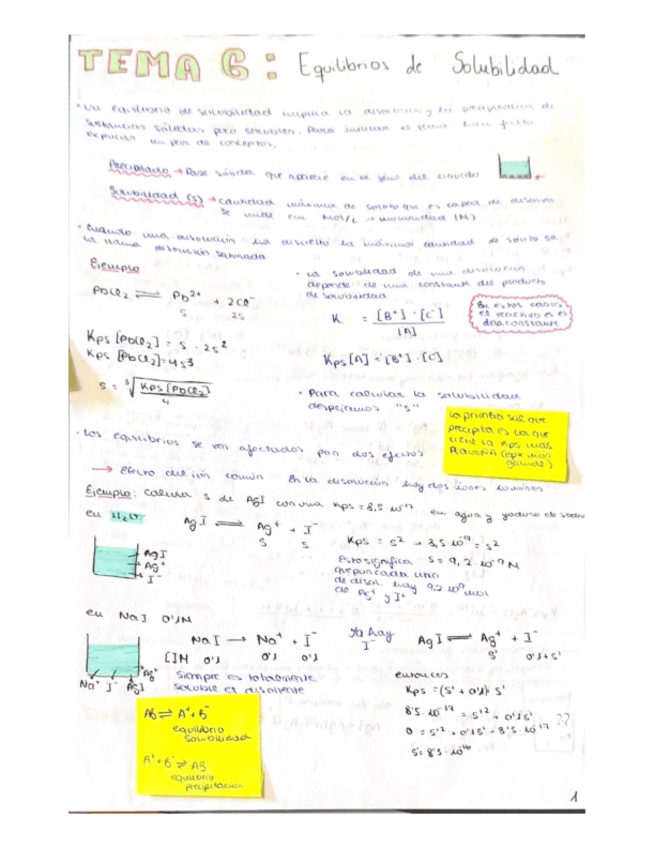 TEMA 6: Equilibrios de Solubilidad
• Un equilibrio de solubilidad implica la disolución y la precipitación de
sustancias sólidas poco solubles. Para el tema
explicar un par de conceptos.
Precipitado → Fase sólida que aparece en el seno del líquido
Solubilidad (s) → cantidad máxima de soluto que es capaz de
se mide en mol/L → molaridad (M)
• Cuando una disolución ha disuelto la máxima cantidad de soluto se
la llama disolución saturada
Ejemplo
PbCl2 ⇌ Pb2+ + 2Cl-
s 2s
Kps [PbCl2] = s · 2s2
Kps [PbCl2] = 4s3
s = ∛ Kps [PbCl2] / 4
• La solubilidad de una disolución
depende de una constante del producto
de solubilidad
K = [B+] · [C-] / [A]
En estos casos
el reactivo es el
Kps [A] = [B+] · [C]
• Para calcular la solubilidad
despejamos "s"
La primera sal que
precipita es la que
tiene la Kps más
PEQUEÑA (exp más
grande)
• Los equilibrios se ven afectados por dos efectos
→ Efecto del ión común En la disolución hay dos iones comunes
Ejemplo: Calcula s de AgI con una Kps = 8,5·10-17 en agua y yoduro de
en H2O
AgI ⇌ Ag+ + I-
s s
AgI
Ag+
I-
Kps = s2 → = s2
Esto significa s = 9,2·10-9 M
que por cada litro
de disol. hay 9,2·10-9 mol
de Ag+ y I+
en NaI 0'1M
NaI → Na+ + I-
[]M 0'1 0'1 0'1
Na+ I- AgI Ag+
Siempre es totalmente
soluble el
Ya hay
I-
AgI ⇌ Ag+ + I-
s' 0'1+s'
entonces
Kps = (s' + 0'1) · s'
8'5·10-17 = s'2 + 0'1s'
0 = s'2 + 0'1s' - 8'5·10-17
s' = 8'5·10-16
AB ⇌ A+ + B-
equilibrio
solubilidad
A+ + B- ⇌ AB
equilibrio
precipitación
1